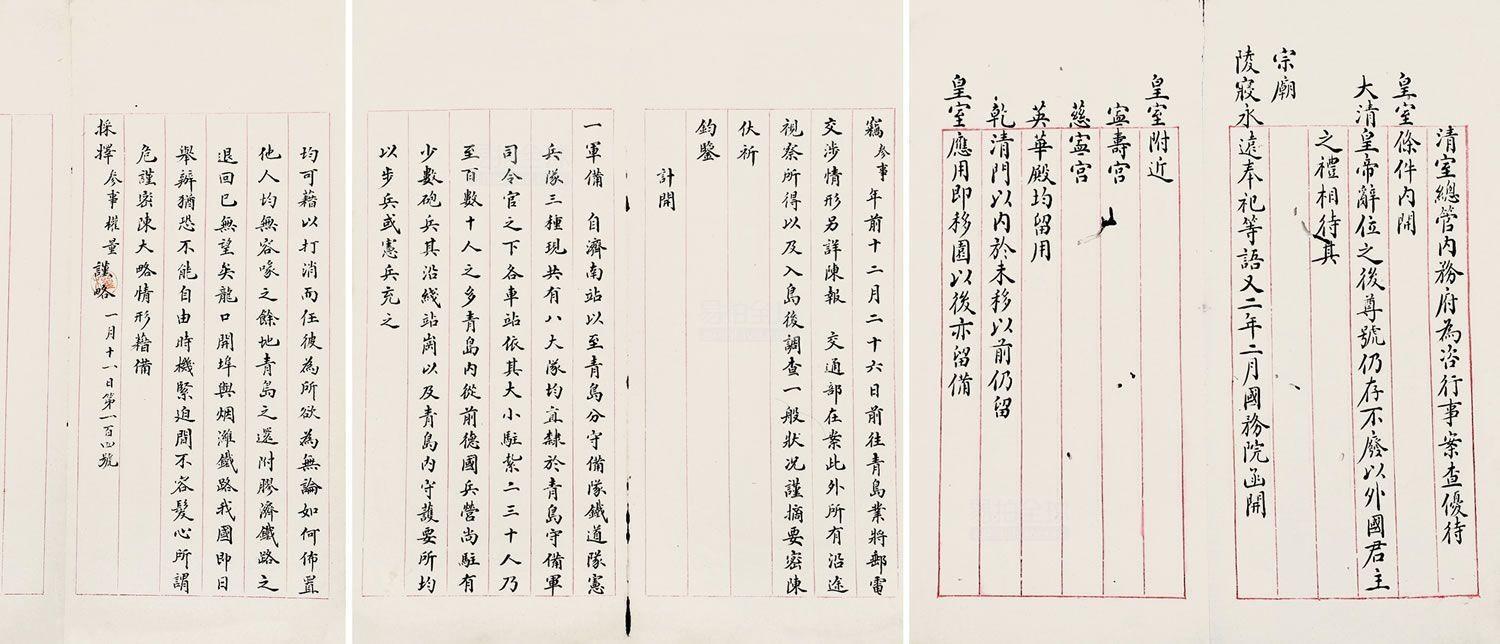 清室總管內務府為咨行事案查優待
皇室條件內開
大清皇帝辭位之後尊號仍存不廢以外國君主
之禮相待其
宗廟
陵寢永遠奉祀等語又二年二月國務院函開
皇室附近
寧壽宮
慈寧宮
英華殿均留用
乾清門以內於未移以前仍留
皇室應用即移園以後亦留備
竊參事年前十二月二十六日前往青島業將郵電
交涉情形另詳陳報　交通部在案此外所有沿途
視察所得以及入島後調查一般狀況謹摘要密陳
伏祈
鈞鑒
計開
一軍備　自濟南站以至青島分守備隊鐵道隊憲
兵隊三種現共有八大隊均直隸於青島守備軍
司令官之下各車站依其大小駐紮二三十人乃
至百數十人之多青島內從前德國兵營尚駐有
少數砲兵其沿綫站崗以及青島內守護要所均
以步兵或憲兵充之
均可藉以打消而任彼為所欲為無論如何佈置
他人均無容喙之餘地青島之還附膠濟鐵路之
退回已無望矣龍口開埠與烟濰鐵路我國即日
舉辦猶恐不能自由時機緊迫間不容髮心所謂
危謹密陳大略情形藉備
採擇參事權量謹略一月十八日第一百四號